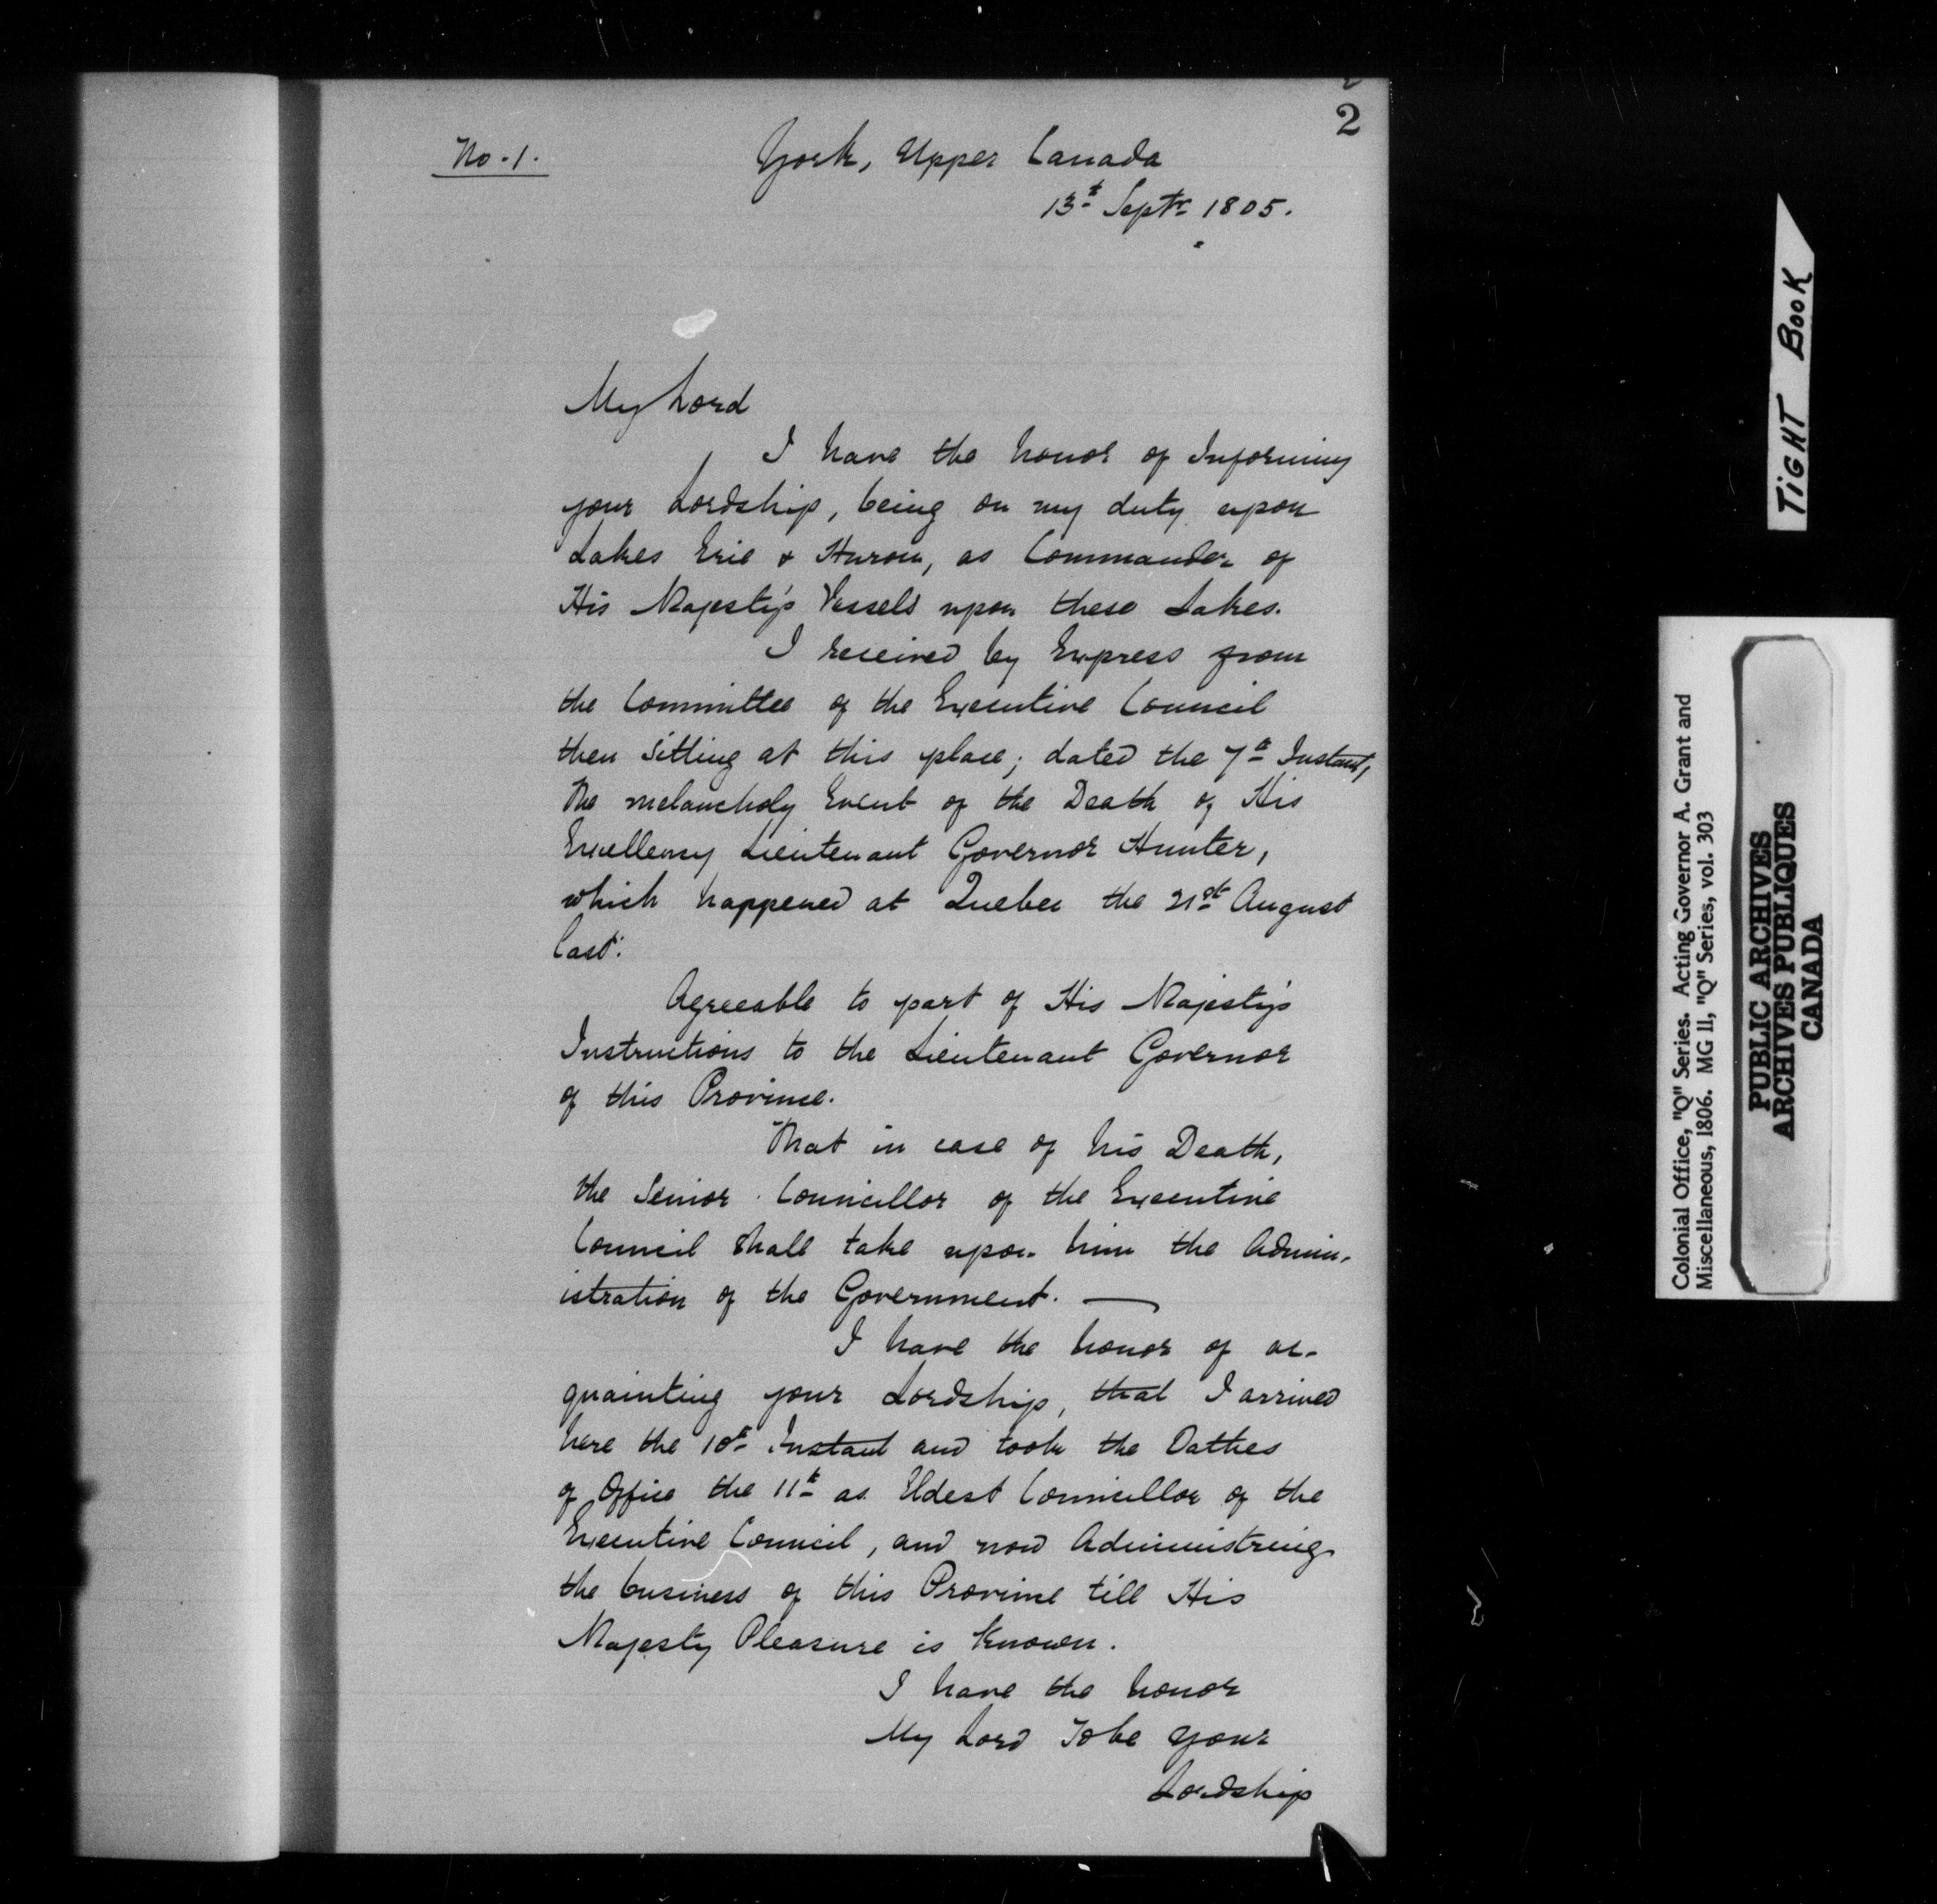 2
No. 1.
York, Upper Canada
13t Septr 1805.
My Lord
I have the honor of Informing
your Lordship, being on my duty upon
Lakes Erie & Huron, as Commander of
His Majesty's Vessels upon these Lakes.
I received by Express from
the Committee of the Executive Council
then sitting at this place; dated the 7th Instant,
the melancholy Event of the Death of His
Excellency Lieutenant Governor Hunter,
which happened at Quebec the 21st August
last.
Agreeable to part of His Majesty's
Instructions to the Lieutenant Governor
of this Province.
That in case of his Death,
the Senior Councillor of the Executive
Council shall take upon him the Admin-
istration of the Government. —
I have the honor of ac-
quainting your Lordship, that I arrived
here the 10th Instant and took the Oathes
of Office the 11th as Eldest Councillor of the
Executive Council, and now Administring
the business of this Province till His
Majesty Pleasure is Known.
I have the honor
My Lord To be your
Lordship
TIGHT BOOK
Colonial Office, "Q" Series. Acting Governor A. Grant and
Miscellaneous, 1806. MG 11, "Q" Series, vol. 303
PUBLIC ARCHIVES
ARCHIVES PUBLIQUES
CANADA